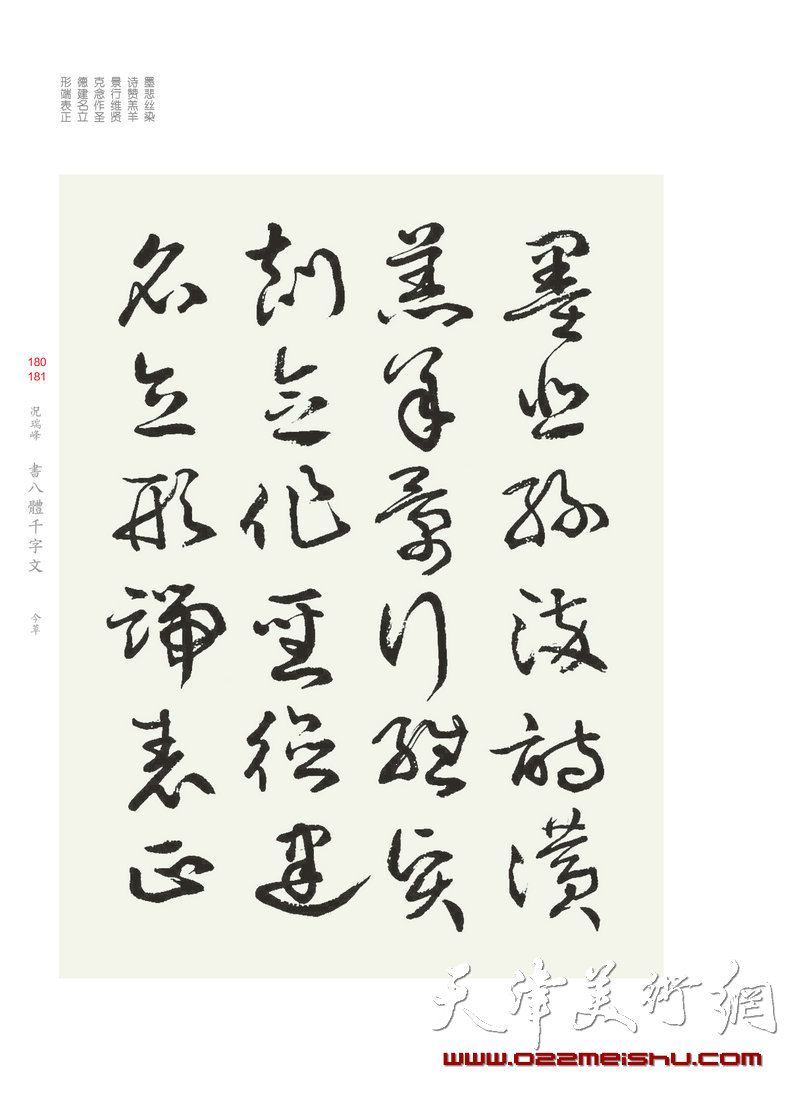 墨悲丝染
诗赞羔羊
景行维贤
克念作圣
德建名立
形端表正
墨悲絲染詩讚
羔羊景行維賢
剋念作聖德建
名立形端表正
180
181
况瑞峰
書八體千字文
今草
天津美術網
www.022meishu.com